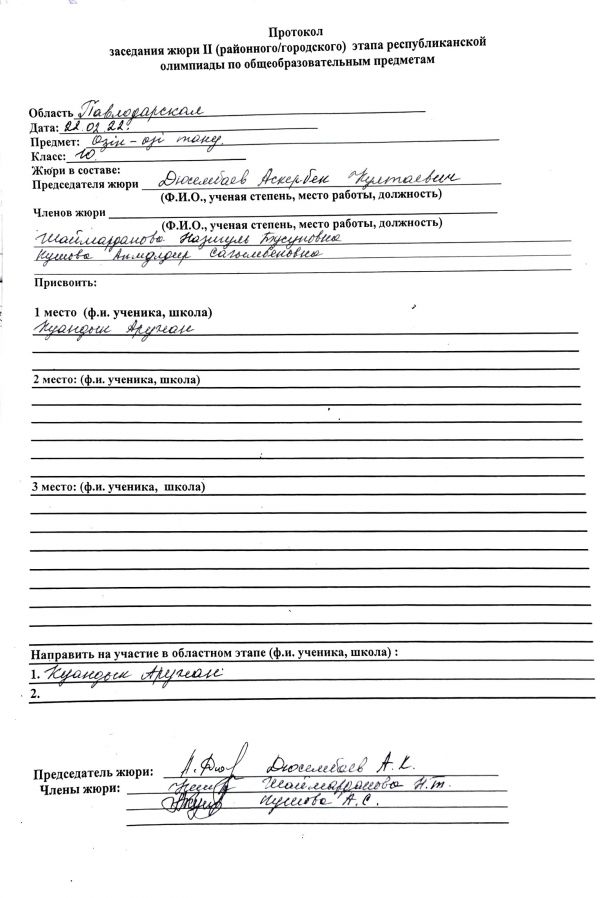 Протокол
заседания жюри II (районного/городского) этапа республиканской
олимпиады по общеобразовательным предметам
Область Павлодарская
Дата: 22.02.22.
Предмет: Өзін-өзі тану.
Класс: 10
Жюри в составе:
Председателя жюри Дюсембаев Аскербек Култаевич
(Ф.И.О., ученая степень, место работы, должность)
Членов жюри
(Ф.И.О., ученая степень, место работы, должность)
Шаймарданова Назгуль
Кушова Сагымбековна
Присвоить:
1 место (ф.и. ученика, школа)
Куандык Аружан
2 место: (ф.и. ученика, школа)
3 место: (ф.и. ученика, школа)
Направить на участие в областном этапе (ф.и. ученика, школа) :
1. Куандык Аружан
2.
Председатель жюри: Дюсембаев А.К.
Члены жюри: Шаймарданова Н.Т.
Кушова А.С.